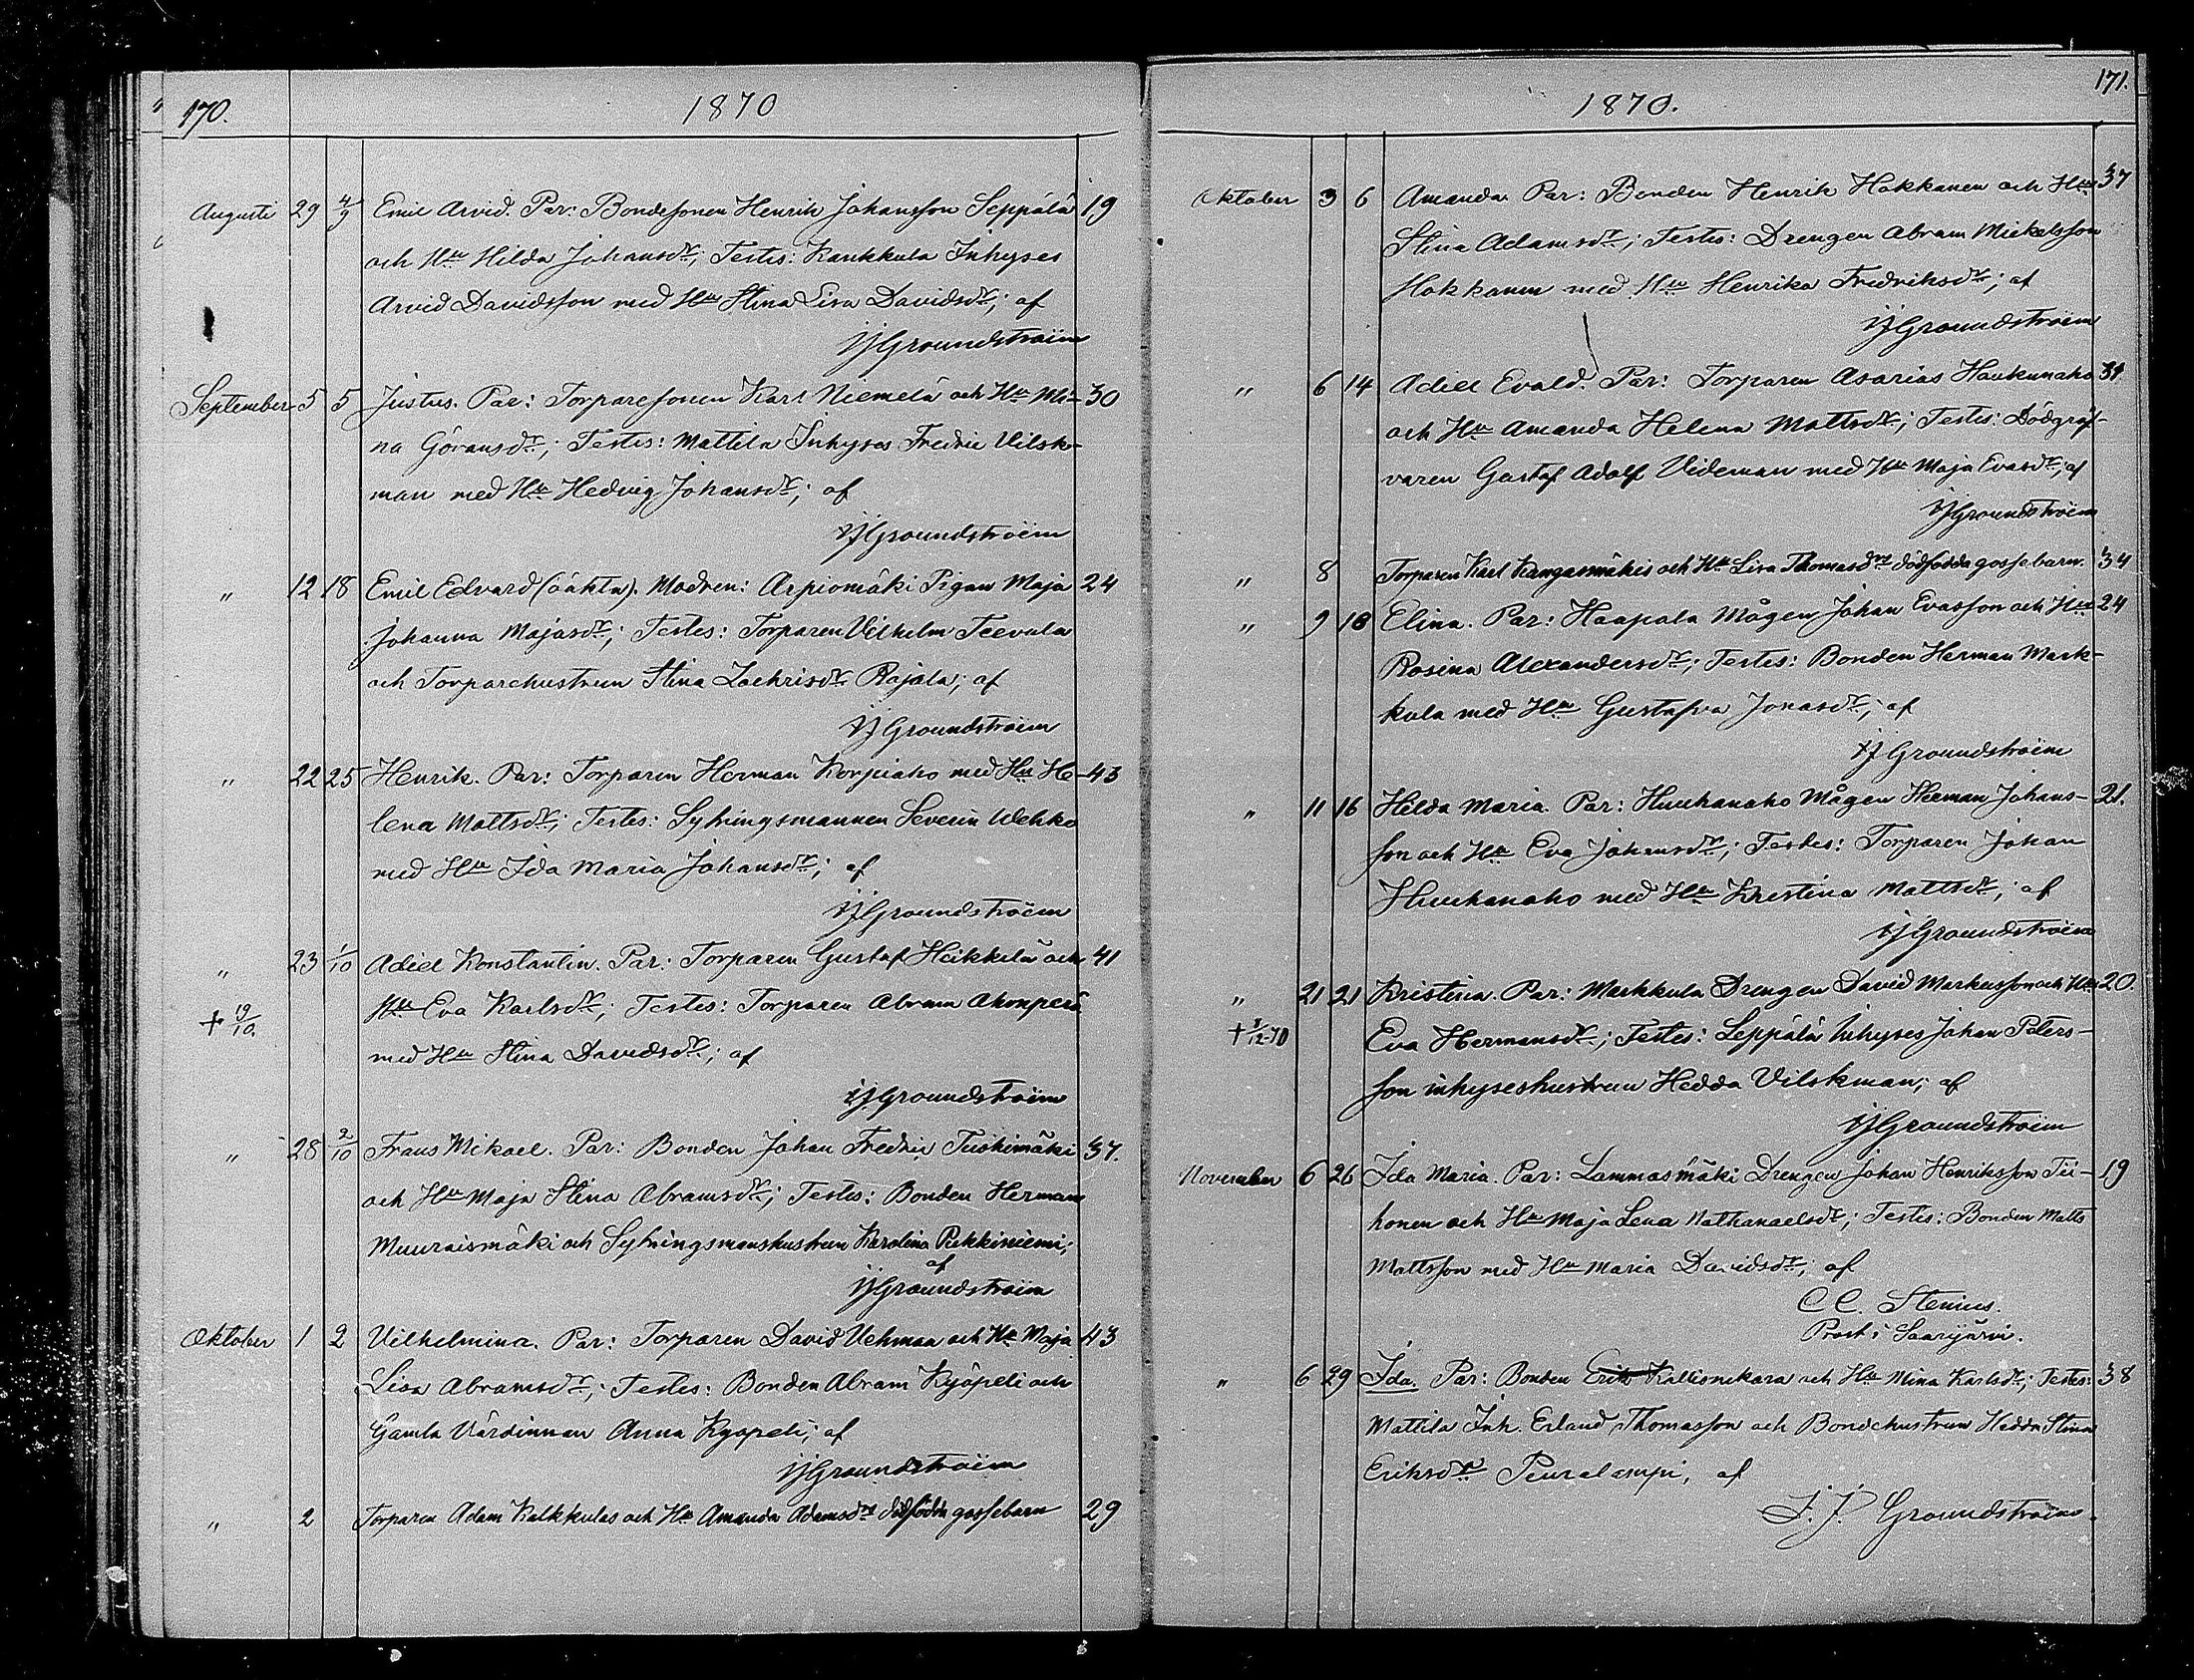 170.
1870
Augusti 29 4/9 Emil Arvid. Par: Bondesonen Henrik Johansson Seppälä 19
och Hu Hilda Johansdr; Testes: Kaukkula Inhyses
Arvid Davidsson med Hu Stina Lisa Davidsdr; af
JJGroundstroïm
September 5 5 Justus. Par: Torparesonen Karl Niemelä och Hu Mi- 30
na Göransdr; Testes: Mattila Inhyses Fredric Vilsk-
man med Hu Hedvig Johansdr; af
JJGroundstroïm
" 12 18 Emil Edvard (oäkta). Modren: Arpiomäki Pigan Maja 24
Johanna Majasdr; Testes: Torparen Vilhelm Teevala
och Torparehustrun Stina Zachrisdr Rajala; af
JJGroundstroïm
" 22 25 Henrik. Par: Torparen Herman Korpiaho med Hu He- 43
lena Mattsdr; Testes: Sytningsmannen Severin Wehko
med Hu Ida Maria Johansdr; af
JJGroundstroïm
" 23 1/10 Adiel Konstantin. Par: Torparen Gustaf Heikkilä och 41
+ 19/10. Hu Eva Karlsdr; Testes: Torparen Abram Ahonperä
med Hu Stina Davidsdr; af
JJGroundstroïm
" 28 2/10 Frans Mikael. Par: Bonden Johan Fredric Tuohimäki 37.
och Hu Maja Stina Abramsdr; Testes: Bonden Herman
Muuraismäki och Sytningsmanshustrun Karolina Pukkiniemi;
af
JJGroundstroïm
Oktober 1 2 Vilhelmina. Par: Torparen David Uehmaa och Hu Maja 43
Lisa Abramsdr; Testes: Bonden Abram Kyöpeli och
Gamla Värdinnan Anna Kyöpeli; af
JJGroundstroïm
" 2 Torparen Adam Kalkkulas och Hu Amanda Adamsdrs dödfödda gossebarn 29
171.
1870.
Oktober 3 6 Amanda Par: Bonden Henrik Hokkanen och Hu 37
Stina Adamsdr; Testes: Drengen Abram Mickelsson
Hokkanen med Hu Henrika Fredriksdr; af
JJGroundstroïm
" 6 14 Adiel Evald. Par: Torparen Asarias Haukunaho 31
och Hu Amanda Helena Mattsdr; Testes: Dödgräf-
varen Gustaf Adolf Videman med Hu Maja Evasdr; af
JJGroundstroïm
" 8 Torparen Karl Kangasmäkis och Hu Lisa Thomasdrs dödfödda gossebarn. 34
" 9 18 Elina. Par: Haapala Mågen Johan Evasson och Hu 24
Rosina Alexandersdr; Testes: Bonden Herman Mark-
kula med Hu Gustafva Jonasdr; af
JJGroundstroïm
" 11 16 Hilda Maria. Par: Huuhanaho Mågen Herman Johans- 21.
son och Hu Eva Johansdr; Testes: Torparen Johan
Huuhanaho med Hu Kristina Mattsdr; af
JJGroundstroïm
" 21 21 Kristina. Par: Markkula Drengen David Markusson och Hu 20.
+ /12-70 Eva Hermansdr; Testes: Leppälä Inhyses Johan Peters-
son inhyseshustrun Hedda Vilskman; af
JJGroundstroïm
November 6 26 Ida Maria. Par: Lammasmäki Drengen Johan Henriksson Tii- 19
honen och Hu Maja Lena Nathanaelsdr; Testes: Bonden Matts
Mattsson med Hu Maria Davidsdr; af
C C. Stenius.
Prost i Saarijärvi.
" 6 29 Ida. Par: Bonden Erik Kallionekara och Hu Mina Karlsdr; Testes: 38
Mattila Inh. Erland Thomasson och Bondehustrun Hedda Stina
Eriksdr Peuralampi, af
J. J. Groundstroïm.